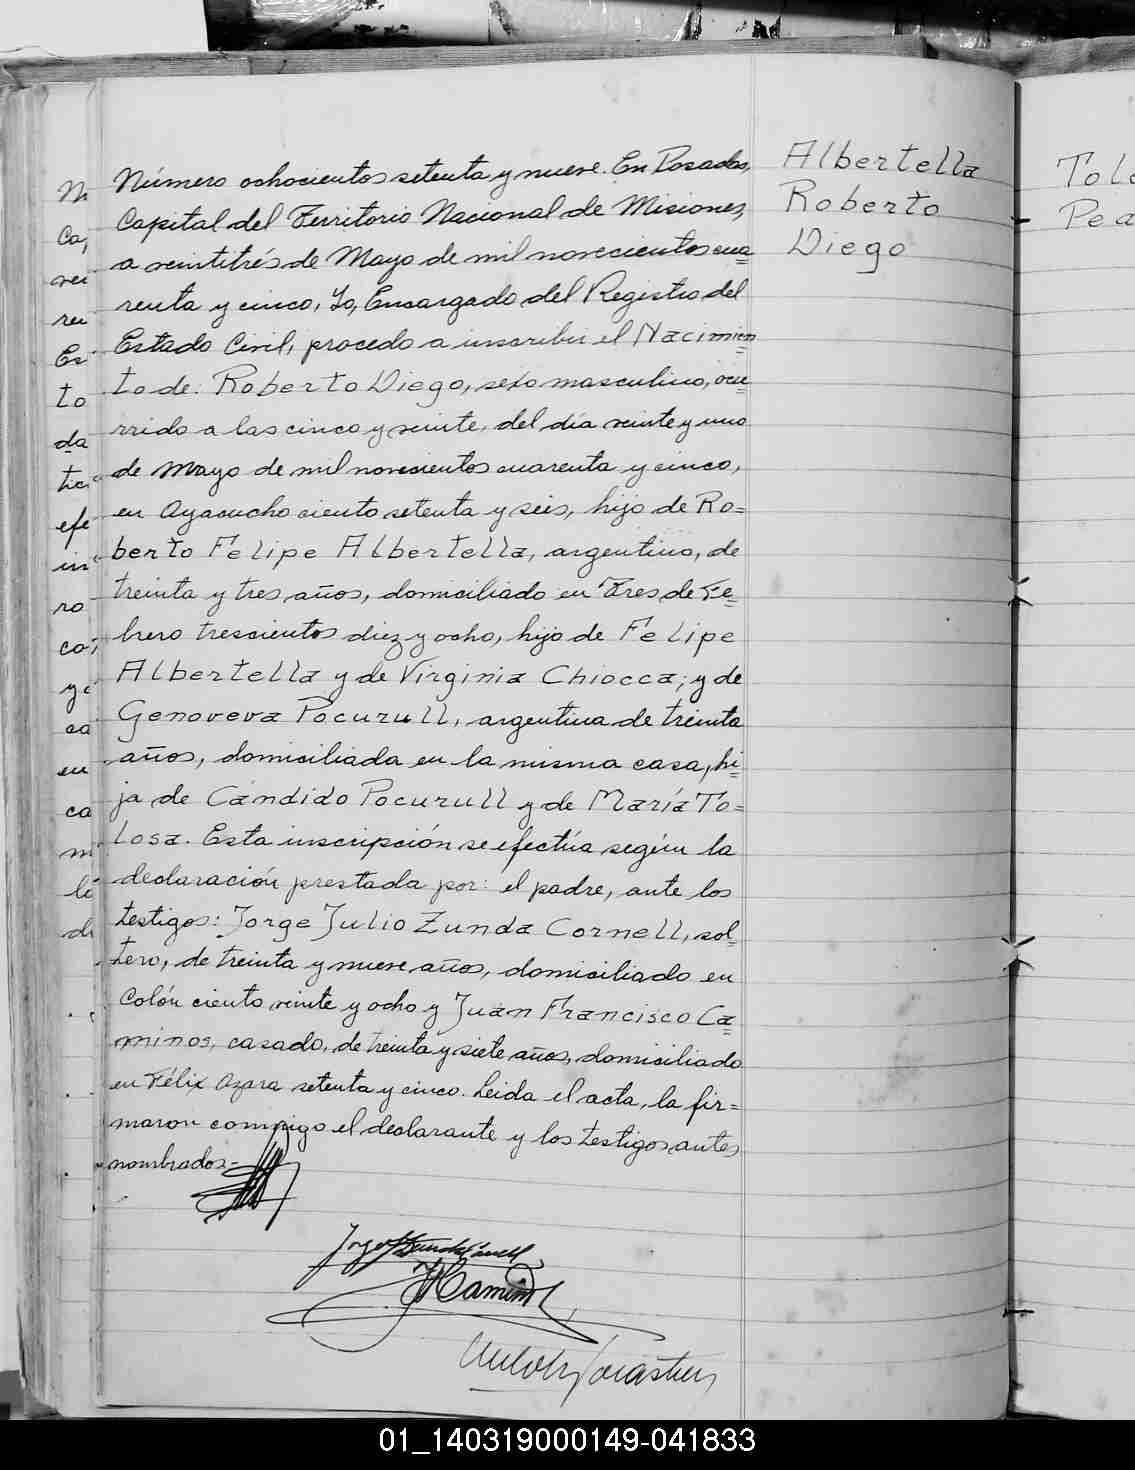 Número ochocientos setenta y nueve. En Posadas,
Capital del Territorio Nacional de Misiones,
a veintitrés de Mayo de mil novecientos cua=
renta y cinco, Yo, Encargado del Registro del
Estado Civil, procedo a inscribir el Nacimien=
to de: Roberto Diego, sexo masculino, ocu=
rrido a las cinco y veinte, del día veinte y uno
de Mayo de mil novecientos cuarenta y cinco,
en Ayacucho ciento setenta y seis, hijo de Ro=
berto Felipe Albertella, argentino, de
treinta y tres años, domiciliado en Tres de Fe=
brero trescientos diez y ocho, hijo de Felipe
Albertella y de Virginia Chiocca; y de
Genoveva Pocurull, argentina de treinta
años, domiciliada en la misma casa, hi=
ja de Cándido Pocurull y de María To=
losa. Esta inscripción se efectúa según la
declaración prestada por: el padre, ante los
testigos: Jorge Julio Zunda Cornell, sol=
tero, de treinta y nueve años, domiciliado en
Colón ciento veinte y ocho y Juan Francisco Ca=
minos, casado, de treinta y siete años, domiciliado
en Félix Azara setenta y cinco. Leida el acta, la fir=
maron conmigo el declarante y los testigos antes
nombrados=
Albertella
Roberto
Diego
Tol
Pea
Na
Ca,
vei
ren
Es
to
da
efe
in
ro
ca,
y
en
ca
m
le
01_140319000149-041833